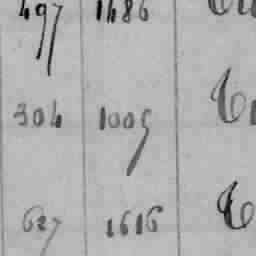 497 1486
304 1005
627 1616